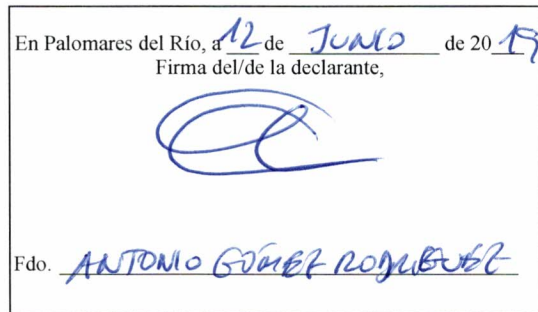 En Palomares del Río, a 12 de JUNIO de 20 19
Firma del/de la declarante,
Fdo. ANTONIO GÓMEZ RODRIGUEZ